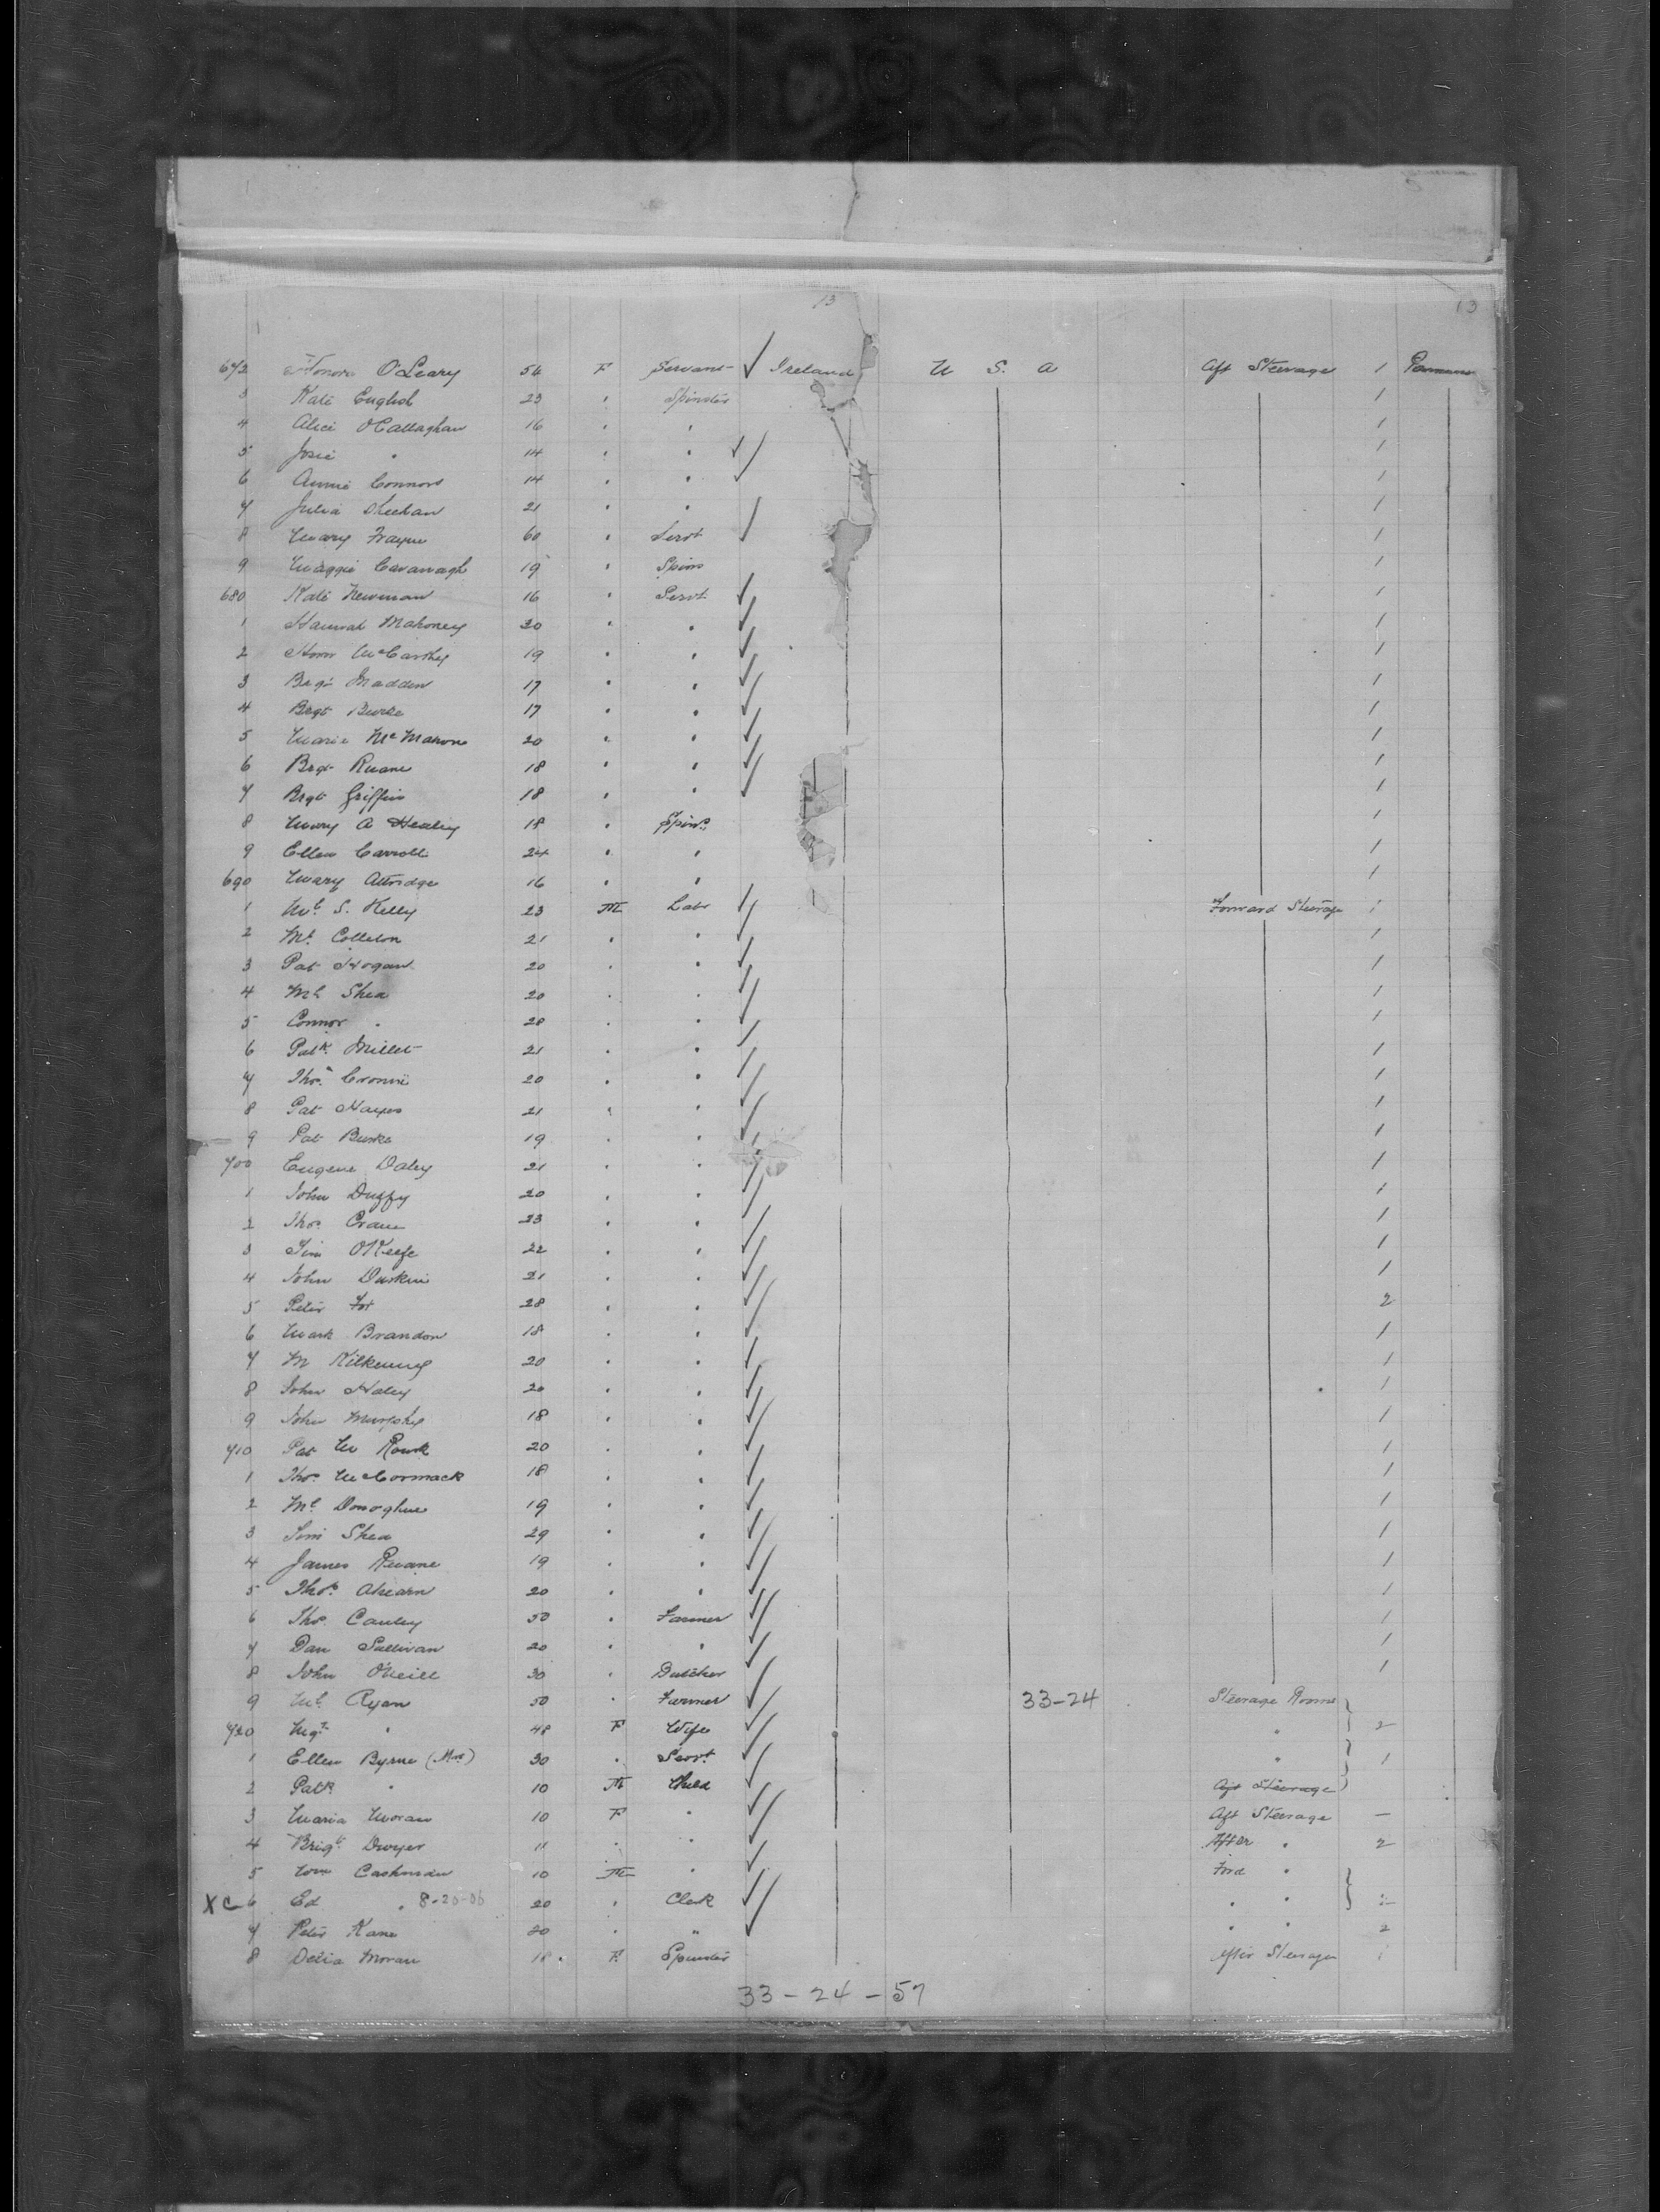 13 13
672 Honora O'Leary 54 F Servant Ireland U S. A Aft Steerage 1
3 Kate English 23 " Spinster 1
4 Alice O'Callaghan 16 " " 1
5 Josie " 14 " " 1
6 Annie Connors 14 " " 1
7 Julia Sheehan 21 " " 1
8 Mary Frayne 60 " Servt 1
9 Maggie Cavanagh 19 " Spins 1
680 Kate Newman 16 " Servt 1
1 Hannah Mahoney 20 " " 1
2 Hnor McCarthy 19 " " 1
3 Brgt Madden 17 " " 1
4 Brgt Burke 17 " " 1
5 Maria McMahon 20 " " 1
6 Brgt Ruane 18 " " 1
7 Brgt Griffin 18 " " 1
8 Mary A Healey 18 " Spins 1
9 Ellen Carroll 24 " " 1
690 Mary Attridge 16 " " 1
1 Ml S. Kelly 23 M Labr Forward Steerage 1
2 Ml Colleton 21 " " 1
3 Pat Hogan 20 " " 1
4 Ml Shea 20 " " 1
5 Connor " 28 " " 1
6 Patk Millet 21 " " 1
7 Thos Cronin 20 " " 1
8 Pat Hayes 21 " " 1
9 Pat Burke 19 " " 1
700 Eugene Daley 21 " " 1
1 John Duffy 20 " " 1
2 Thos Crane 23 " " 1
3 Tim O'Keefe 22 " " 1
4 John Durkin 21 " " 1
5 Peter Fox 28 " " 2
6 Mark Brandon 18 " " 1
7 M Kilkenny 20 " " 1
8 John Haley 20 " " 1
9 John Murphy 18 " " 1
710 Pat M Rourk 20 " " 1
1 Thos McCormack 18 " " 1
2 Ml Donoghue 19 " " 1
3 Tim Shea 29 " " 1
4 James Ruane 19 " " 1
5 Thos Ahearn 20 " " 1
6 Thos Cauley 50 " Farmer 1
7 Dan Sullivan 20 " " 1
8 John O'Neill 30 " Butcher 1
9 Ml Ryan 50 " Farmer 33-24 Steerage Rooms
720 Mgt " 48 F Wife " 2
1 Ellen Byrne (Mrs) 30 " Servt " 1
2 Patk " 10 M Child Aft Steerage
3 Maria Moran 10 F " Aft Steerage —
4 Brigt Dwyer 11 " " After " 2
5 Wm Cashman 10 M " Ford "
XC 6 Ed " 8-20-06 20 " Clerk " "
7 Peter Kane 20 " " " " 2
8 Delia Moran 18 F Spinster After Steerage 1
33-24-57